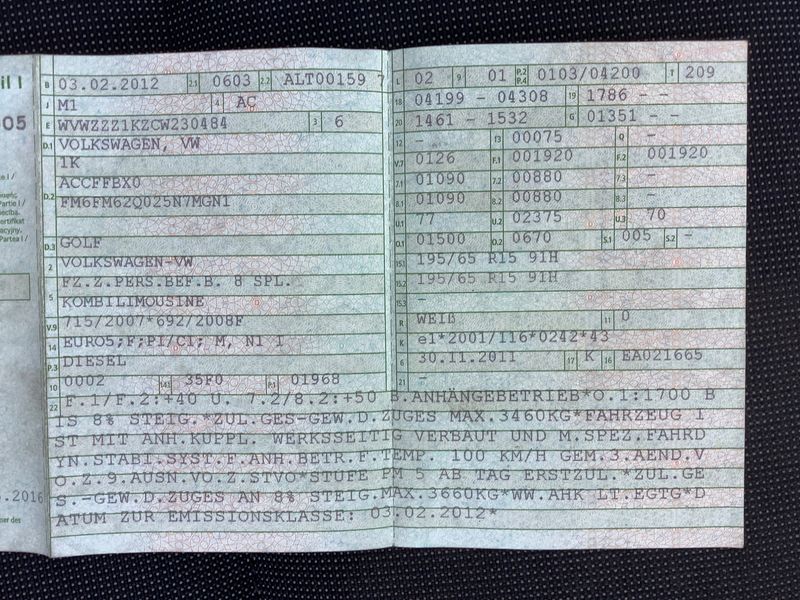 il I
B 03.02.2012 2.1 0603 2.2 ALT00159 7
J M1 4 AC
05 E WVWZZZ1KZCW230484 3 6
D.1 VOLKSWAGEN, VW
1K
D.2 ACCFFBX0
FM6FM62Q025N7MGN1
D.3 GOLF
2 VOLKSWAGEN-VW
5 FZ.Z.PERS.BEF.B. 8 SPL.
KOMBILIMOUSINE
V.9 715/2007*692/2008F
14 EURO5;F;PI/CI; M, N1 I
P.3 DIESEL
10 0002 14.1 35F0 P.1 01968
L 02 9 01 P.2 P.4 0103/04200 T 209
18 04199 - 04308 19 1786 - -
20 1461 - 1532 G 01351 - -
12 - 13 00075 Q -
V.7 0126 F.1 001920 F.2 001920
7.1 01090 7.2 00880 7.3 -
8.1 01090 8.2 00880 8.3 -
U.1 77 U.2 02375 U.3 70
O.1 01500 O.2 0670 S.1 005 S.2 -
15.1 195/65 R15 91H
15.2 195/65 R15 91H
15.3 -
R WEIß 11 0
K e1*2001/116*0242*43
6 30.11.2011 17 K 16 EA021665
21 -
22 F.1/F.2:+40 U. 7.2/8.2:+50 B.ANHÄNGEBETRIEB*O.1:1700 B
IS 8% STEIG.*ZUL.GES-GEW.D.ZUGES MAX.3460KG*FAHRZEUG I
ST MIT ANH.KUPPL. WERKSSEITIG VERBAUT UND M.SPEZ.FAHRD
YN.STABI.SYST.F.ANH.BETR.F.TEMP. 100 KM/H GEM.3.AEND.V
O.Z.9.AUSN.VO.Z.STVO*STUFE PM 5 AB TAG ERSTZUL.*ZUL.GE
.2016 S.-GEW.D.ZUGES AN 8% STEIG.MAX.3660KG*WW.AHK LT.EGTG*D
ATUM ZUR EMISSIONSKLASSE: 03.02.2012*